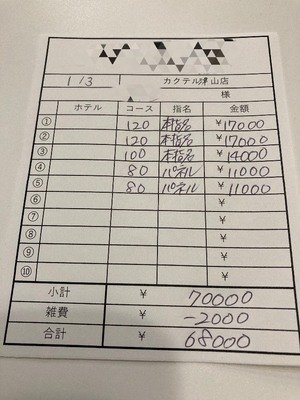 1/3 カクテル津山店
様
ホテル コース 指名 金額
① 120 本指名 ¥17000
② 120 本指名 ¥17000
③ 100 本指名 ¥14000
④ 80 パネル ¥11000
⑤ 80 パネル ¥11000
⑥ ¥
⑦ ¥
⑧ ¥
⑨ ¥
⑩ ¥
小計 ¥ 70000
雑費 ¥ -2000
合計 ¥ 68000